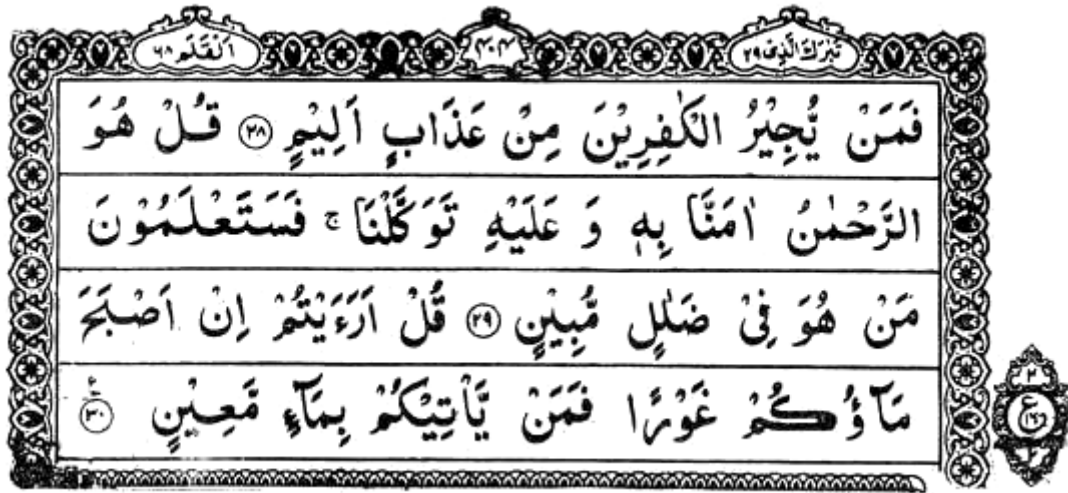 تبٰرك الذی ۲۹
۴۰۴
اَلْقَلَم ۶۸
فَمَنْ یُّجِیْرُ الْكٰفِرِیْنَ مِنْ عَذَابٍ اَلِیْمٍ ﴿۲۸﴾ قُلْ هُوَ
الرَّحْمٰنُ اٰمَنَّا بِهٖ وَ عَلَیْهِ تَوَكَّلْنَا ۚ فَسَتَعْلَمُوْنَ
مَنْ هُوَ فِیْ ضَلٰلٍ مُّبِیْنٍ ﴿۲۹﴾ قُلْ اَرَءَیْتُمْ اِنْ اَصْبَحَ
مَآؤُكُمْ غَوْرًا فَمَنْ یَّاْتِیْكُمْ بِمَآءٍ مَّعِیْنٍ ﴿۳۰﴾
۲
ع
۲